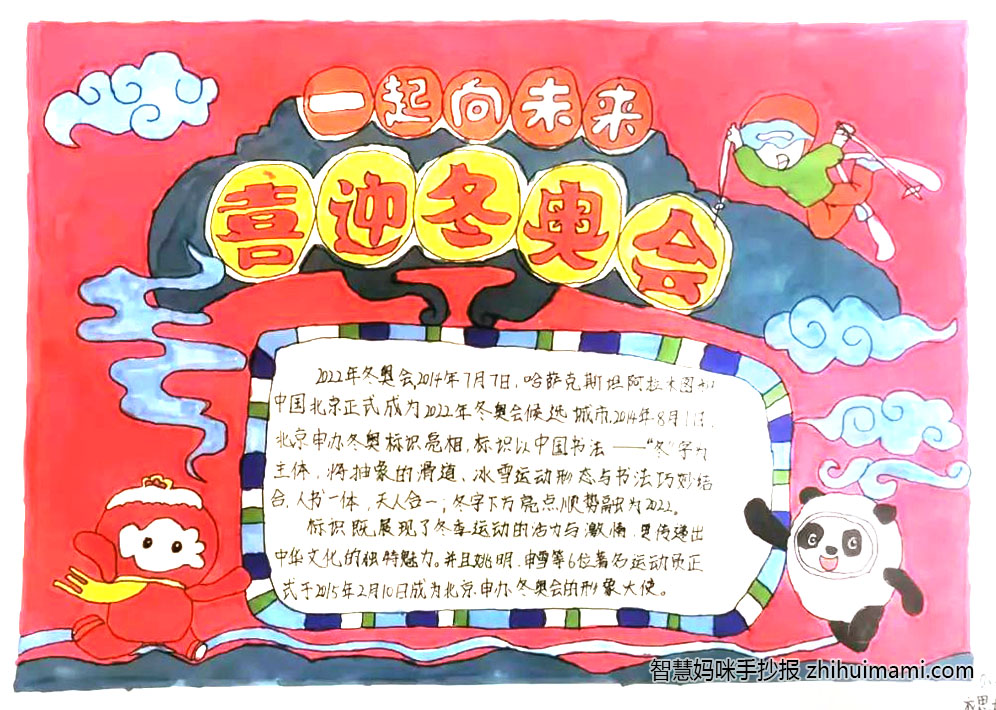 一起向未来
喜迎冬奥会
2022年冬奥会,2014年7月7日，哈萨克斯坦阿拉木图和
中国北京正式成为2022年冬奥会候选城市.2014年8月1日,
北京申办冬奥标识亮相，标识以中国书法——“冬”字为
主体，将抽象的滑道、冰雪运动形态与书法巧妙结
合，人书一体，天人合一；冬字下方亮点顺势融为2022。
标识既展现了冬季运动的活力与激情，更传递出
中华文化的独特魅力。并且姚明、申雪等6位著名运动员正
式于2015年2月10日成为北京申办冬奥会的形象大使。
智慧妈咪手抄报 zhihuimami.com